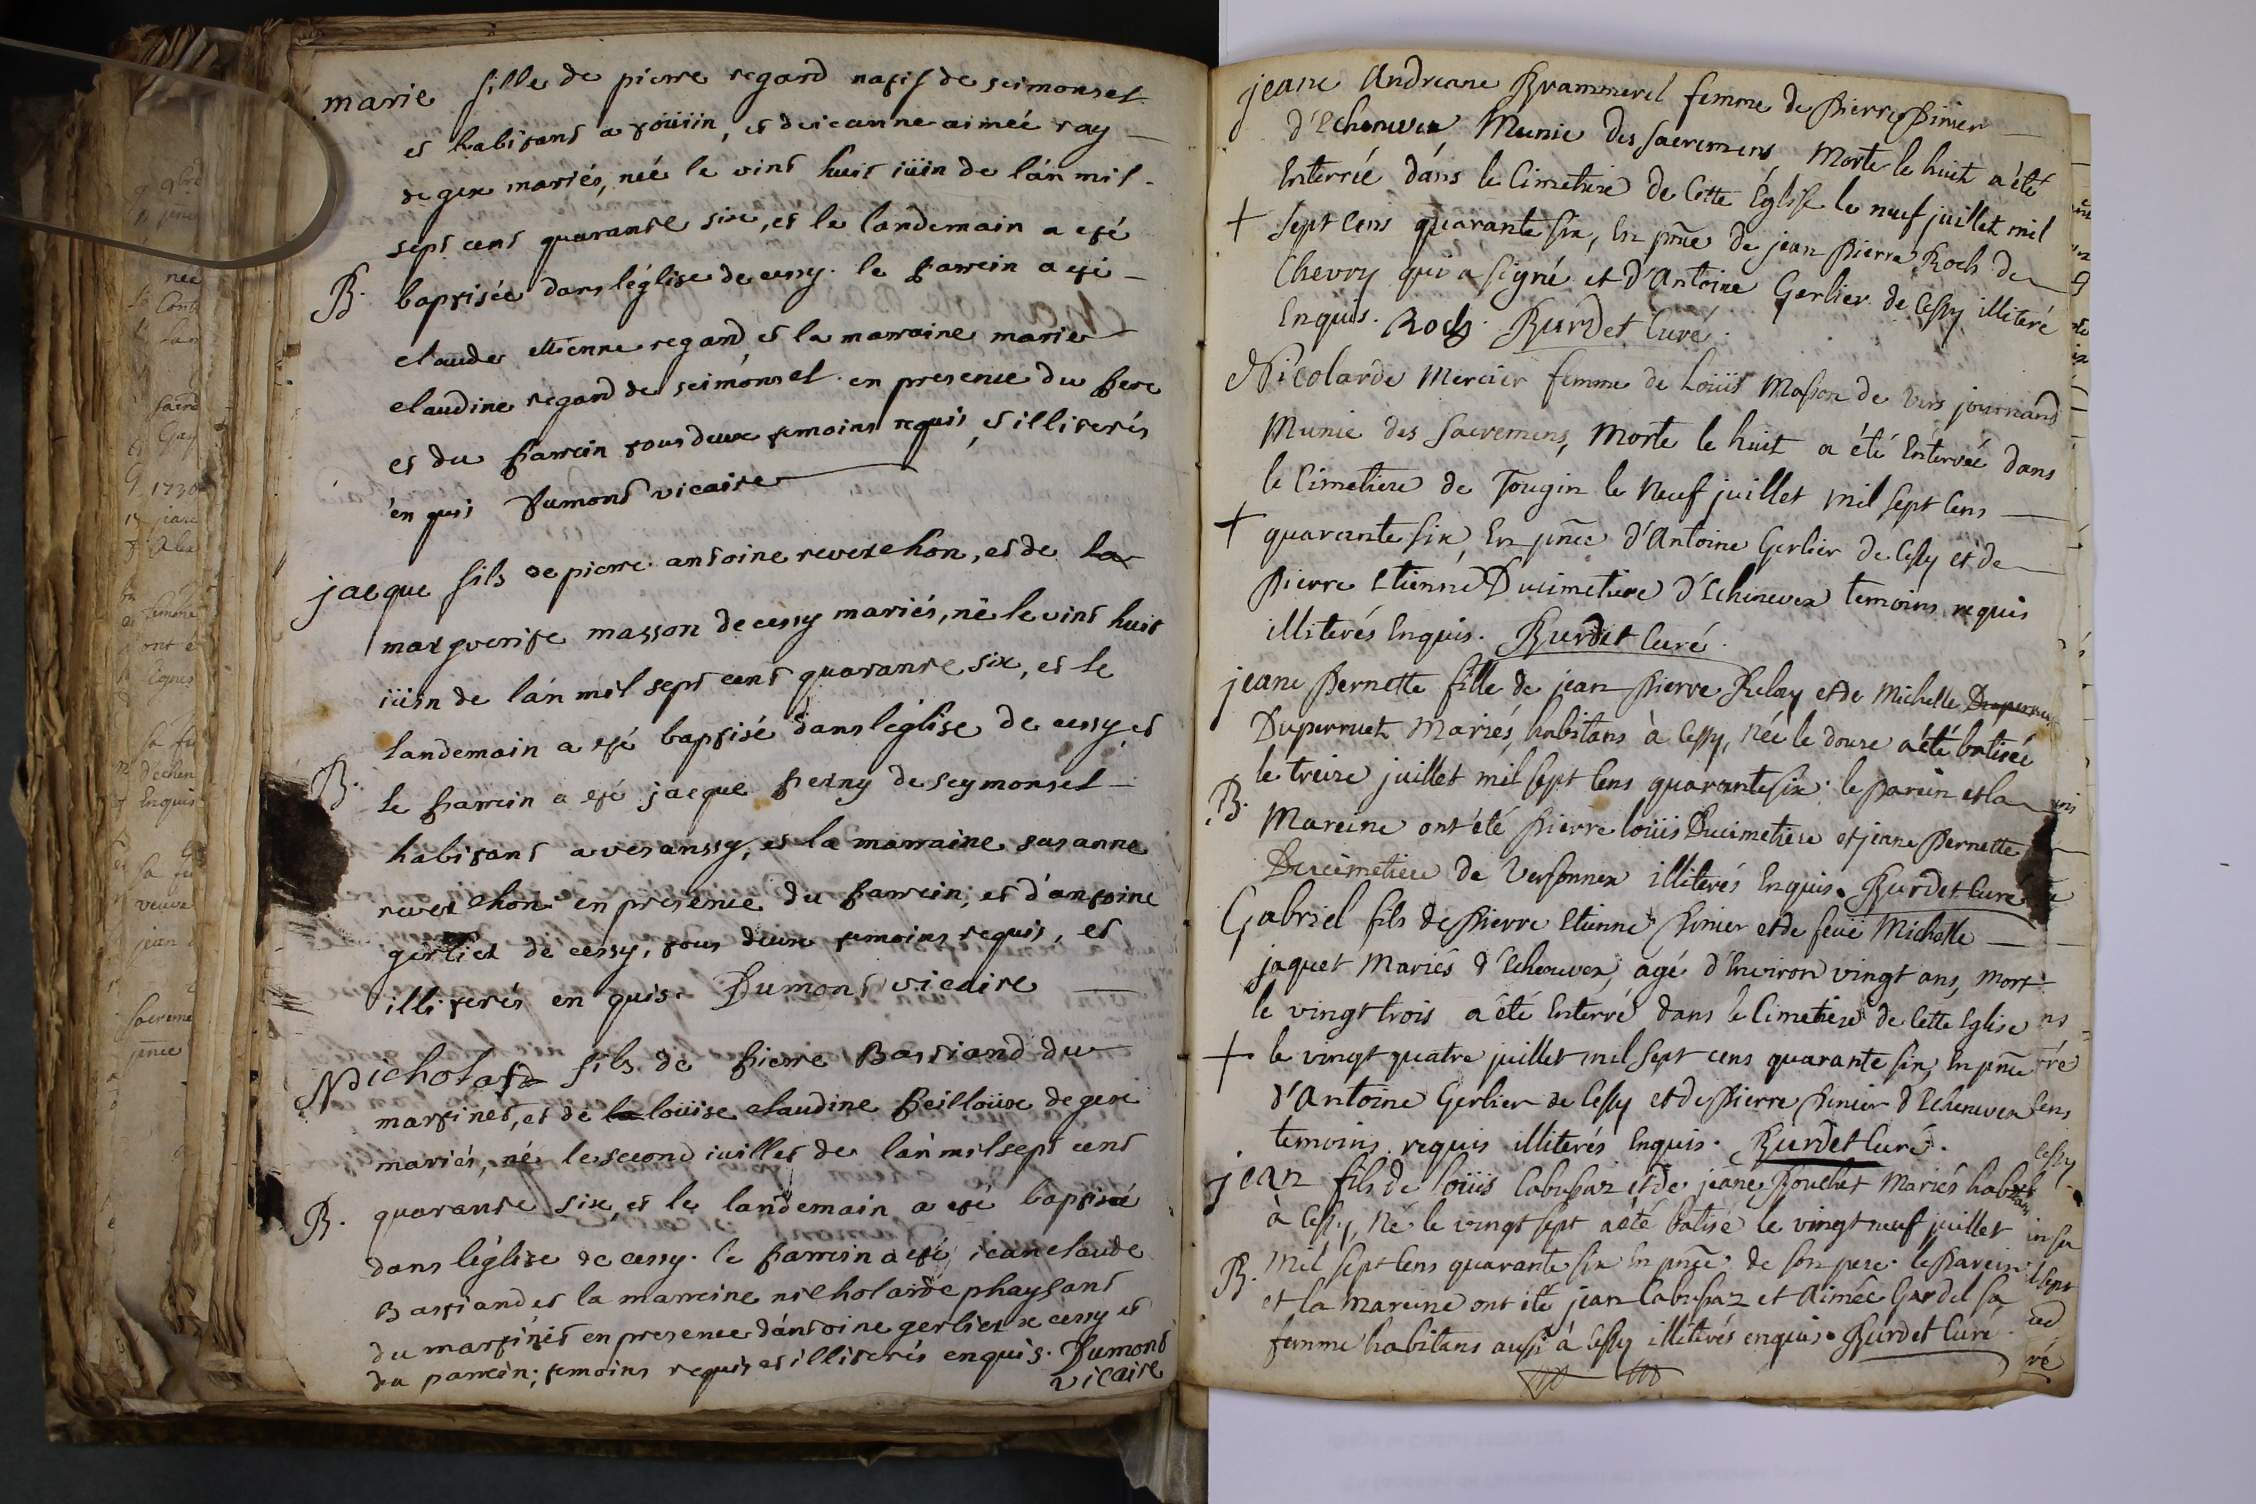 marie fille de pierre regard natif de seimonset
et habitant a toüiin, et de ieanne aimeé ray
de gex mariés, née le vint huit iüin de lán mil
sept cent quarante six, et le landemain a eté
B. baptisée dans léglise de cessy. le parrein a eté
claude etienne regard et la marraine marie
claudine regard de seimónset. en presence du pere
et du parrein tous deux temoins requis et illiterés
én quis Dumont vicaire
jacque fils de pierre antoine reverchon, et de la
marguerite masson de cessy mariés, né le vint huit
iüin de lán mil sept cent quarante six, et le
landemain a eté baptisé dans léglise de cessy, et
B. le parrein a eté jacque perny de seymonset
habitant a vesanssy, et la marraine susanne
reverchon en presence du parrein, et d'antoine
gerliet de cessy, tous deux temoins requis, et
illiterés en quis. Dumont vicaire
Nicholase fils de pierre Bastiand du
martinet, et de la loüise claudine peilloüx de gex
mariés, né le second iuillet de lán mil sept cent
B. quarante six, et le landemain a eté baptisé
dans léglise de cessy. le parrein a eté iean claude
Bastiand et la marreine nicholarde phaysant
du martinet en presence dántoine gerliet de cessy et
du parrein; temoins requis et illiterés enquis. Dumont
vicaire
jeane Andreane Brammerel femme de Pierre Pinier
d'Echenevex, Munie des sacremens, Morte le huit a été
Enterrée dans le Cimetiere de Cette Église le neuf juillet mil
+ Sept Cens quarante six, En pñce de jean Pierre Roch de
Chevry qui a signé et d'Antoine Gerlier de Cessy illiteré
Enquis. Roch. Burdet Curé.
Nicolarde Mercier femme de Loüis Masson de Vers journand
Munie des Sacremens, Morte le huit a été Enterrée dans
le Cimetiere de Tougin le Neuf juillet Mil Sept Cens
+ quarante six, En pñce d'Antoine Gerlier de Cessy et de
Pierre Etienne Ducimetiere d'Echenevex temoins requis
illiterés Enquis. Burdet Curé.
jeane Pernette fille de jean Pierre Relay et de Michelle Duperruet
Duperruet Mariés, habitans à Cessy, Née le douze a été batisée
le treize juillet mil sept Cens quarante six. le Parein et la
B. Mareine ont été Pierre Loüis Ducimetiere et jeane Pernette
Ducimetiere de Versonnex illiterés Enquis. Burdet Curé
Gabriel fils de Pierre Etienne Pinier et de feüe Michelle
jaquet Mariés d'Echenevex, agé d'Environ vingt ans, mort
le vingt trois a été Enterré dans le Cimetiere de Cette Eglise
+ le vingt quatre juillet mil Sept cens quarante six, En pñce
d'Antoine Gerlier de Cessy et de Pierre Pinier d'Echenevex
temoins requis illiterés Enquis. Burdet Curé.
jean fils de Loüis Cabussaz et de jeane Pouchet Mariés habitans
à Cessy, Né le vingt sept a été batisé le vingt neuf juillet
B. Mil Sept Cens quarante six En pñce de son pere. le Parein
et la Mareine ont été jean Cabussaz et Aimée Gardel sa
femme habitans aussi à Cessy illiterés enquis. Burdet Curé.